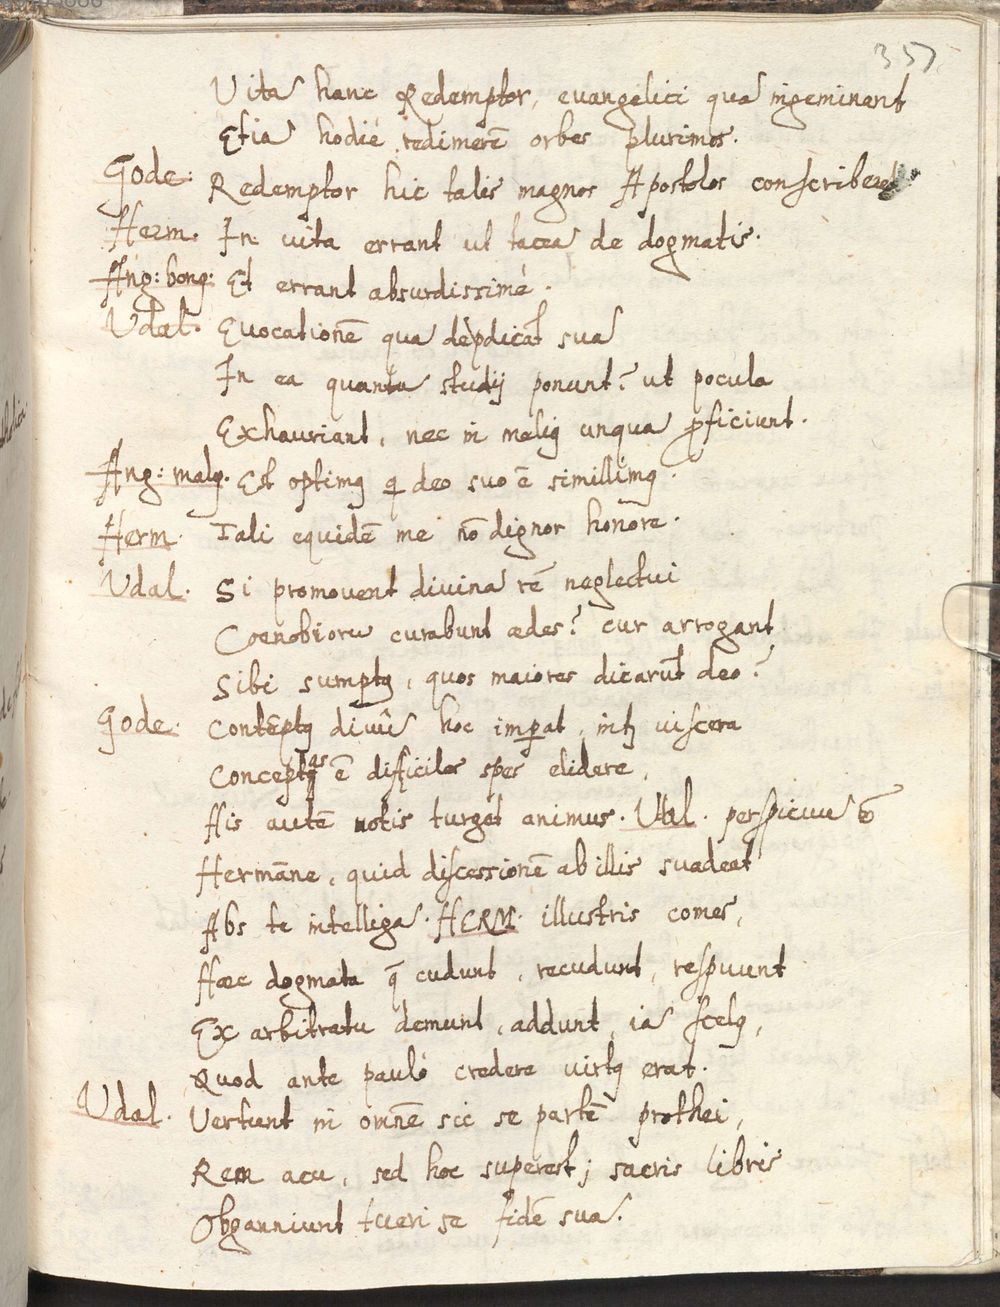 357.
Vitā hanc Redemptor, evangelici quā ingeminant
Etiā hodiè redimerē orbes plurimos.
Gode: Redemptor hic tales magnos Apostolos conscriberet
Herm. In vita errant ut taceā de dogmatis.
Ang: bong: Et errant absurdissimè.
Udal. Evocationē quā depdicāt suā
In ea quantū studij ponunt? ut pocula
Exhauriant, nec in melig unquā proficiunt.
Ang: malg. Est optimg qi deo suo ē simillimg.
Herm. Tali equidē me nō dignor honore.
Udal. Si promovent divinā rē neglectui
Coenobiorū curabunt ædes? cur arrogant
Sibi sumptg, quos maiores dicarūt deo?
Gode: Contēptg divū hoc imperat, intɜ viscera
Conceptas ē difficiles spes elidere,
His autē notis turget animus. Udal. perspicuū ē
Hermāne, quid discessionē ab illis suadeat
Abs te intelligā. HERM. illustris comes,
Hæc dogmata q̄ cudunt, recudunt, respuunt
Ex arbitratu demunt, addunt, iā scelg,
Quod ante paulò credere virtg erat.
Udal. Vertunt in omnē sic se partē prothei,
Rem acu, sed hoc superest; sacris libris
Obganniunt tueri se fidē suā.